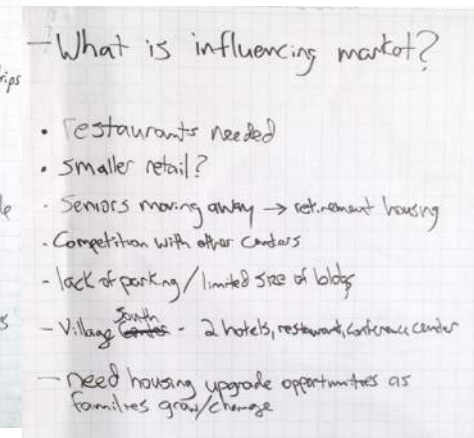 - What is influencing market?
rips
• restaurants needed
• smaller retail?
- Seniors moving away → retirement housing
- Competition with other centers
- lack of parking / limited size of bldgs
South
- Village Center - 2 hotels, restaurant, conference center
- need housing upgrade opportunities as
families grow/change